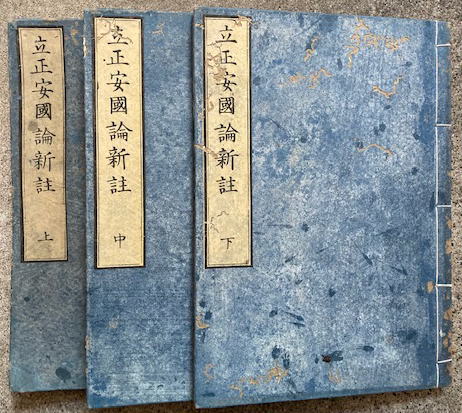 立正安國論新註 上
立正安國論新註 中
立正安國論新註 下